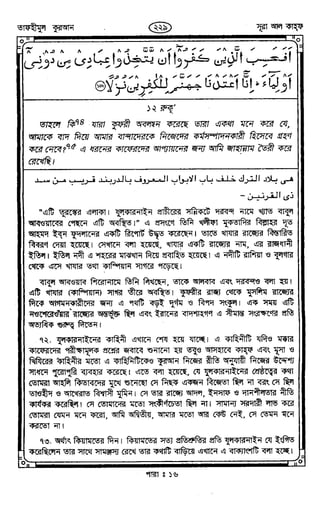 তাফহীমুল কুরআন
২২৯
সূরা আল কাহ্ফ
أَفَحَسِبَ الَّذِينَ كَفَرُوا أَن يَتَّخِذُوا عِبَادِي مِن دُونِي
أَوْلِيَاءَ ۚ إِنَّا أَعْتَدْنَا جَهَنَّمَ لِلْكَافِرِينَ نُزُلًا
১২ রুকূ'
তাহলে কি৭৪ যারা কুফরী অবলম্বন করেছে তারা একথা মনে করে যে,
আমাকে বাদ দিয়ে আমার বান্দাদেরকে নিজেদের কর্মসম্পাদনকারী হিসেবে গ্রহণ
করে নেবে?৭৫ এ ধরনের কাফেরদের আপ্যায়নের জন্য আমি জাহান্নাম তৈরী করে
রেখেছি।
هى بلاد الترك خلف باب الابواب المعروف بالدربند قريب من سد
ذى القرنين -
"এটি তুরস্কের এলাকা। যুলকারনাইন প্রাচীরের সন্নিকটে দরবন্দ নামে খ্যাত বাবুল
আবওয়াবের পেছনে এটি অবস্থিত।" এ প্রসংগে তিনি খলীফা মুকতাদির বিল্লাহর দূত
আহমদ ইবন ফুদলানের একটি রিপোর্ট উদ্ধৃত করেছেন। তাতে খাযার রাজ্যের বিস্তারিত
বিবরণ দেয়া হয়েছে। সেখানে বলা হয়েছে, খাযার একটি রাজ্যের নাম, এর রাজধানী
ইতিল। ইতিল নদী এ শহরের মাঝখান দিয়ে প্রবাহিত হয়েছে। এ নদীটি রাশিয়া ও বুলগার
থেকে এসে খাযার তথা কাস্পিয়ান সাগরে পড়েছে।
বাবুল আবওয়াব শিরোনামে তিনি লিখছেন, তাকে আলবাব এবং দরবন্দও বলা হয়।
এটি খাযার (কাস্পিয়ান) সাগর তীরে অবস্থিত। কুফরীর রাজ্য থেকে মুসলিম রাজ্যের
দিকে আগমনকারীদের জন্য এ পথটি বড়ই দুর্গম ও বিপদ সংকুল। এক সময় এটি
নওশেরেওয়াঁর রাজ্যের অন্তর্ভুক্ত ছিল এবং ইরানের বাদশাহগণ এ সীমান্ত সংরক্ষণের প্রতি
অত্যধিক গুরুত্ব দিতেন।
৭২. যুলকারনাইনের কাহিনী এখানে শেষ হয়ে যাচ্ছে। এ কাহিনীটি যদিও মক্কার
কাফেরদের পরীক্ষামূলক প্রশ্নের জবাবে শুনানো হয় তবুও আসহাবে কাহ্ফ এবং মূসা ও
খিযিরের কাহিনীর মতো এ কাহিনীটিকেও কুরআন নিজের রীতি অনুযায়ী নিজের উদ্দেশ্য
সাধনে পুরোপুরি ব্যবহার করেছে। এতে বলা হয়েছে, যে যুলকারনাইনের শ্রেষ্ঠত্বের কথা
তোমরা আহলি কিতাবদের মুখে শুনেছো সে নিছক একজন বিজেতা ছিল না বরং সে ছিল
তাওহীদ ও আখেরাত বিশ্বাসী মুমিন। সে তার রাজ্যে আদল, ইনসাফ ও দানশীলতার নীতি
কার্যকর করেছিল। সে তোমাদের মতো সংকীর্ণচেতা ছিল না। সামান্য সরদারী লাভ করে
তোমরা যেমন মনে করো, আমি অদ্বিতীয়, আমার মতো আর কেউ নেই, সে তেমন মনে
করতো না।
৭৩. অর্থাৎ কিয়ামতের দিন। কিয়ামতের সত্য প্রতিশ্রুতির প্রতি যুলকারনাইন যে ইংগিত
করেছিলেন তার সাথে সামঞ্জস্য রেখে তার কথাটি বাড়িয়ে এখানে এ বাক্যাংশটি বলা হচ্ছে।
পারা : ১৬